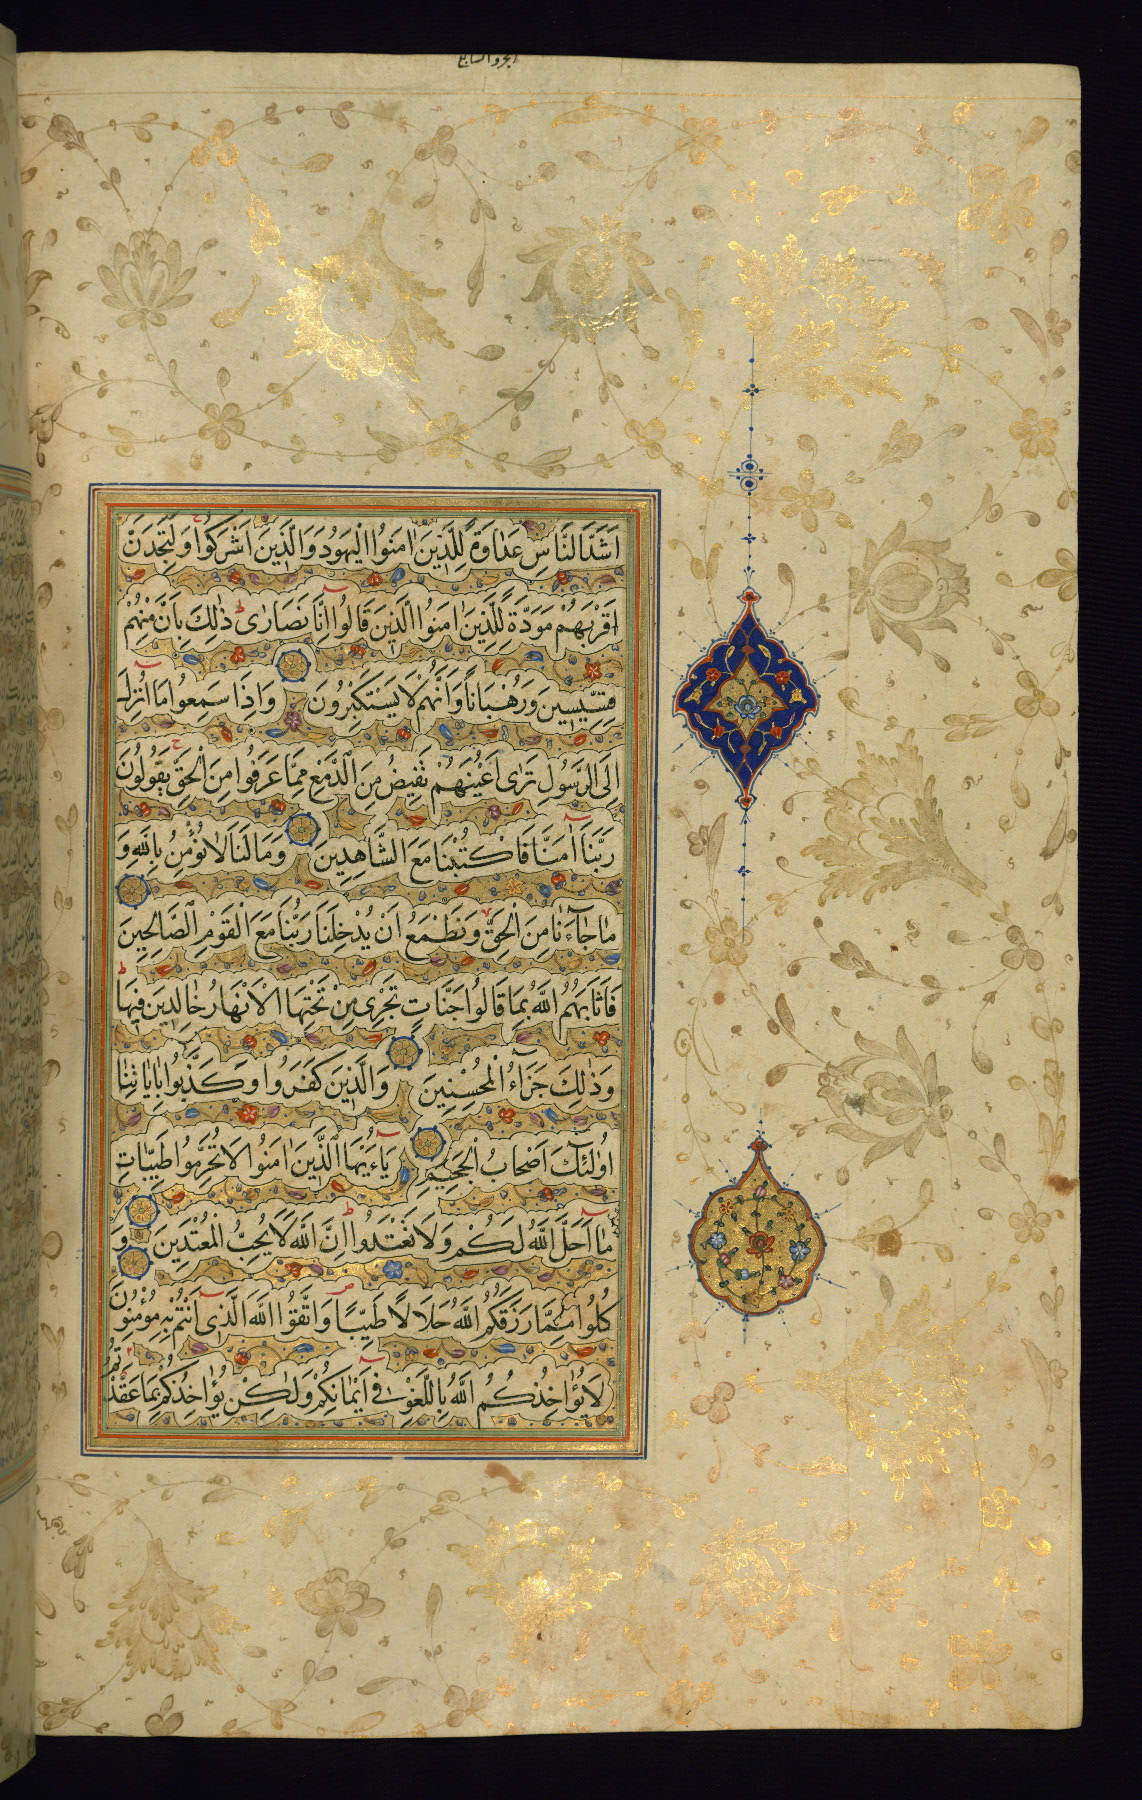 الجزو السابع
اَشَدَّ النَّاسِ عَدٰاوَةً لِلَّذِينَ اٰمَنُوا الْيَهُودَ وَالَّذِينَ اَشْرَكُوا وَلَتَجِدَنَّ
اَقْرَبَهُمْ مَوَدَّةً لِلَّذِينَ اٰمَنُوا الَّذِينَ قَالُوا اِنَّا نَصَارٰى ذٰلِكَ بِاَنَّ مِنْهُمْ
قِسِّيسِينَ وَرُهْبَاناً وَاَنَّهُمْ لَا يَسْتَكْبِرُونَ وَاِذَا سَمِعُوا مَا اُنْزِلَ
اِلَى الرَّسُولِ تَرٰى اَعْيُنَهُمْ تَفِيضُ مِنَ الدَّمْعِ مِمَّا عَرَفُوا مِنَ الْحَقِّ يَقُولُونَ
رَبَّنَا اٰمَنَّا فَاكْتُبْنَا مَعَ الشَّاهِدِينَ وَمَا لَنَا لَا نُؤْمِنُ بِاللّٰهِ وَ
مٰا جٰاءَنٰا مِنَ الْحَقِّ وَنَطْمَعُ اَنْ يُدْخِلَنَا رَبُّنَا مَعَ الْقَوْمِ الصَّالِحِينَ
فَاَثَابَهُمُ اللّٰهُ بِمَا قَالُوا جَنَّاتٍ تَجْرِى مِنْ تَحْتِهَا الْاَنْهَارُ خٰالِدِينَ فِيهَا
وَذٰلِكَ جَزَاءُ الْمُحْسِنِينَ وَالَّذِينَ كَفَرُوا وَكَذَّبُوا بِاٰيَاتِنَا
اُولٰئِكَ اَصْحَابُ الْجَحِيمِ يَاءَيُّهَا الَّذِينَ اٰمَنُوا لَا تُحَرِّمُوا طَيِّبَاتِ
مٰا اَحَلَّ اللّٰهُ لَكُمْ وَلَا تَعْتَدُوا اِنَّ اللّٰهَ لَا يُحِبُّ الْمُعْتَدِينَ وَ
كُلُوا مِمَّا رَزَقَكُمُ اللّٰهُ حَلَالًا طَيِّبًا وَاتَّقُوا اللّٰهَ الَّذِى اَنْتُمْ بِهِ مُؤْمِنُونَ
لَا يُؤٰاخِذُكُمُ اللّٰهُ بِاللَّغْوِ فِى اَيْمَانِكُمْ وَلٰكِنْ يُؤٰاخِذُكُمْ بِمَا عَقَّدْتُمُ